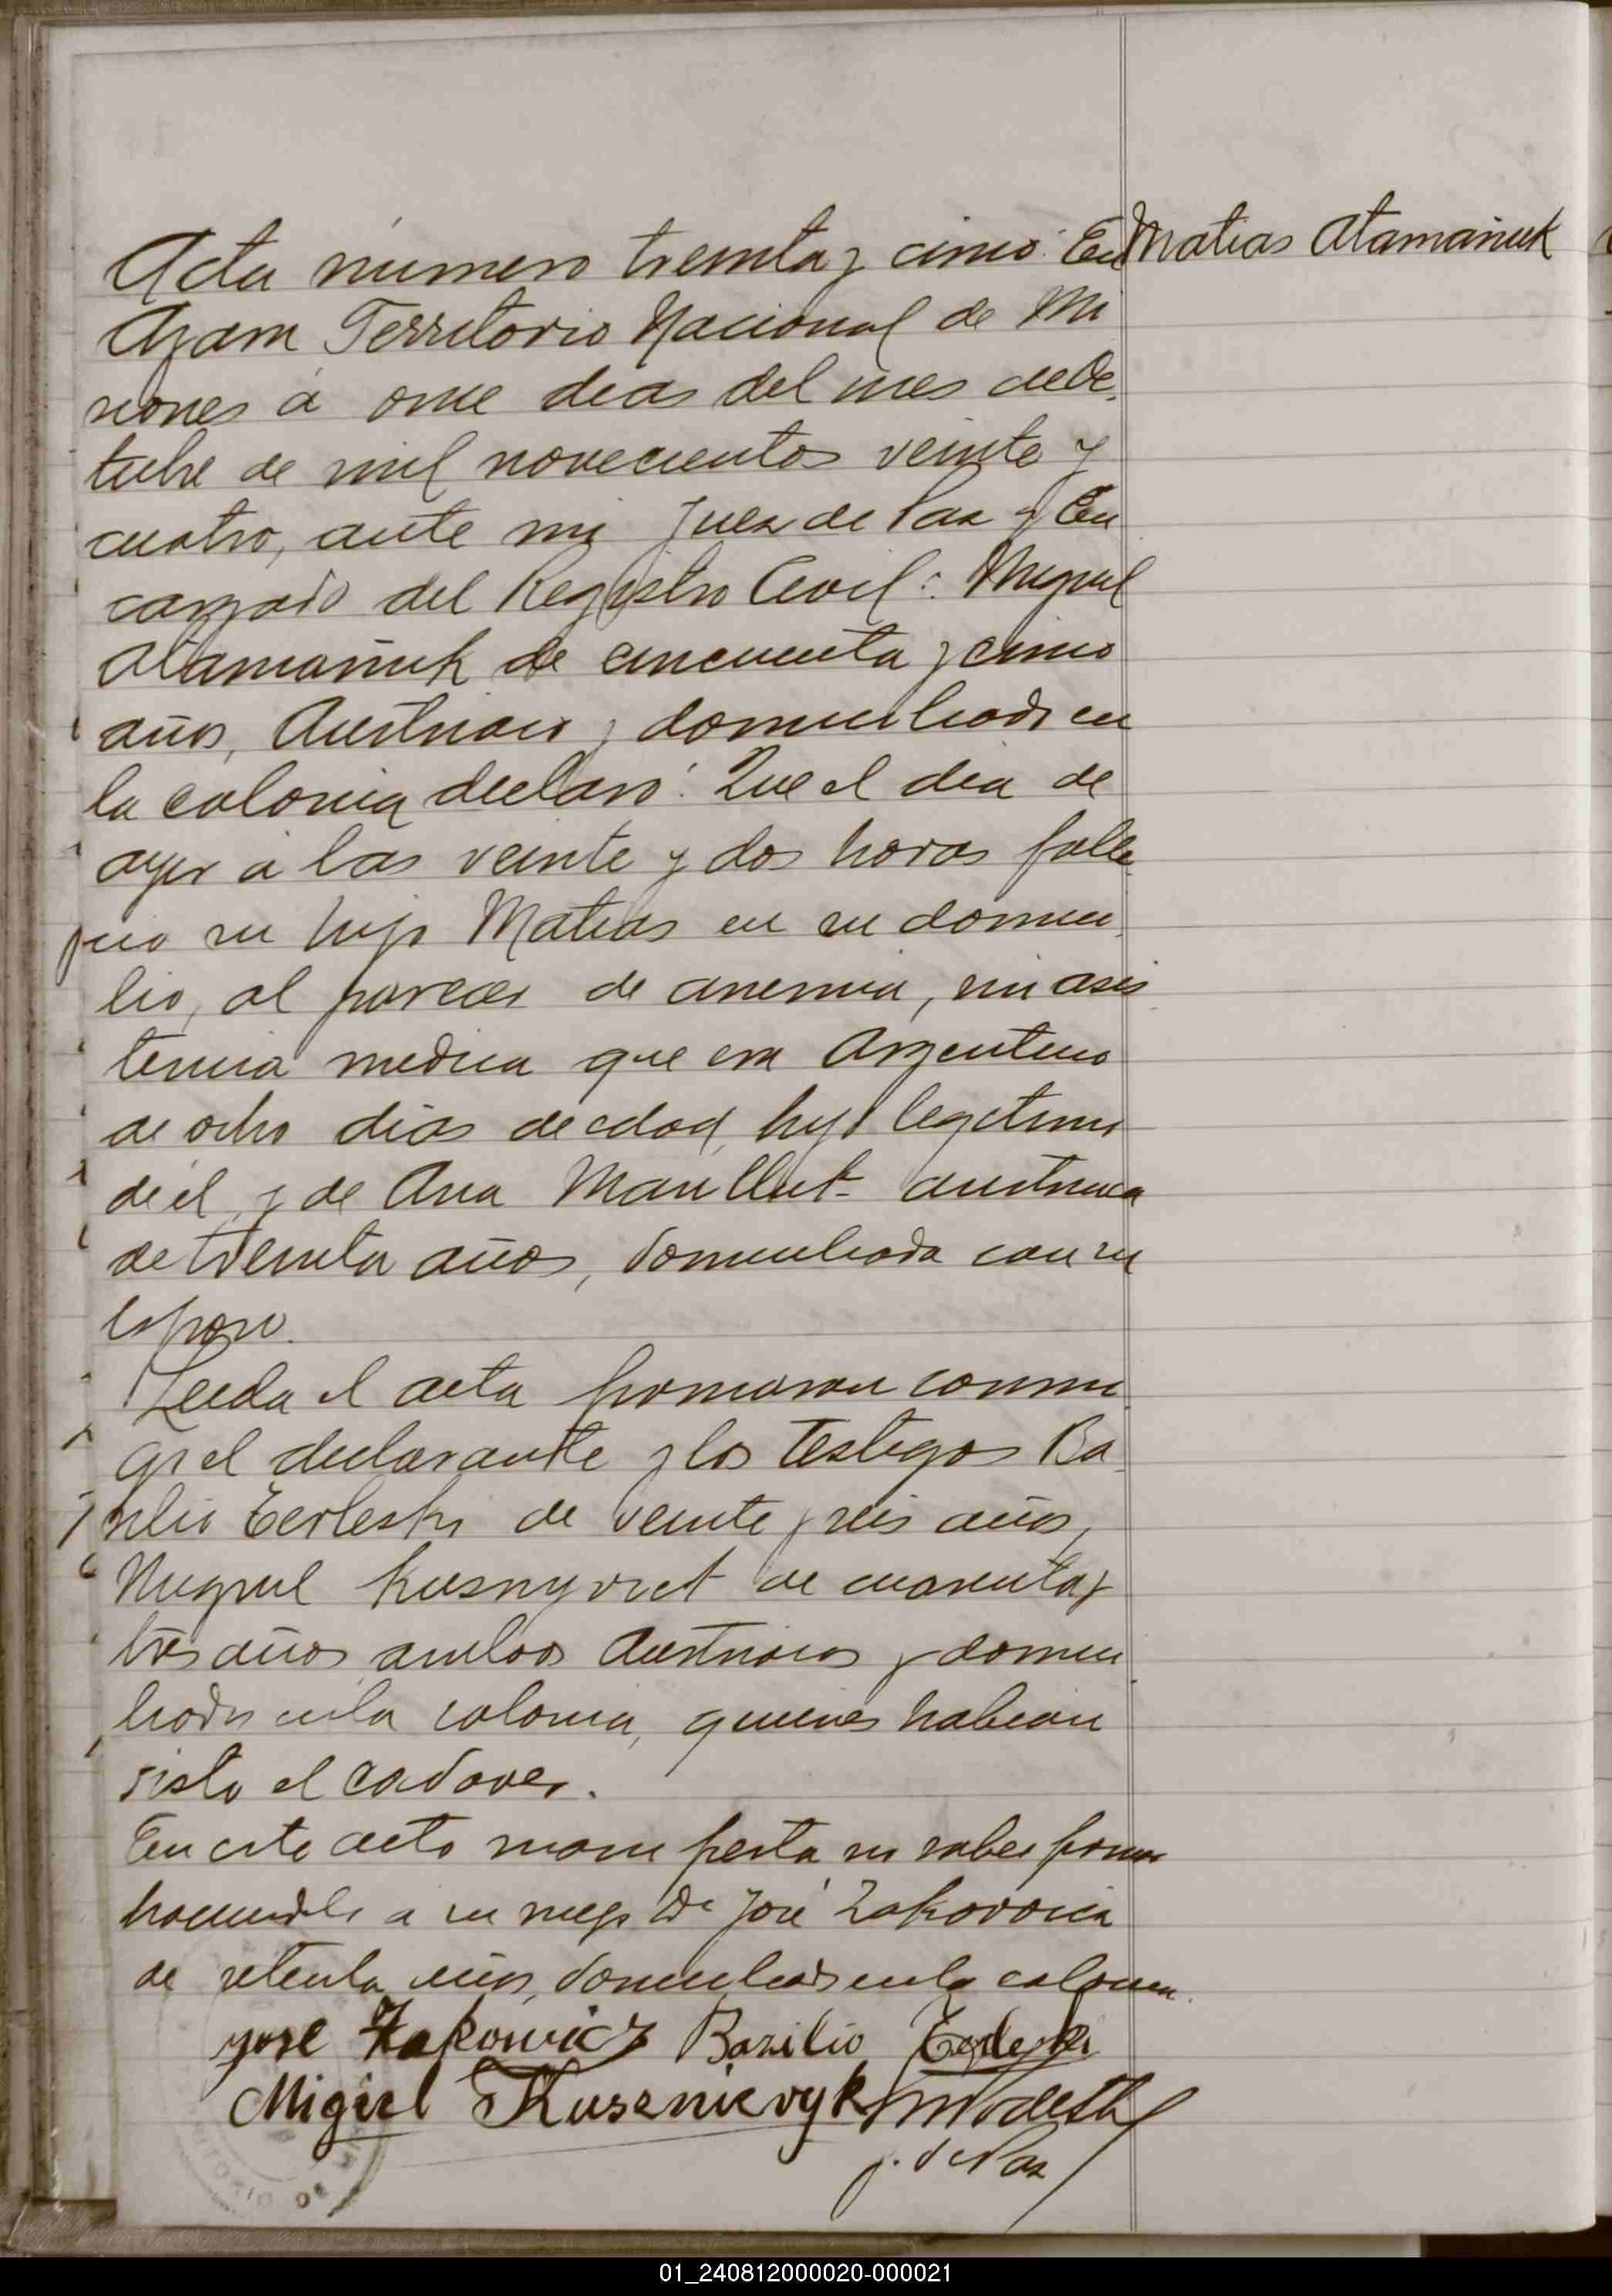 Acta número treinta y cinco: En
Matias Atamañuk
Azara Territorio Nacional de Mi
siones á once dias del mes de Oc
tubre de mil novecientos veinte y
cuatro, ante mi Juez de Paz y En
cargado del Registro Civil: Miguel
Atamañuk de cincuenta y cinco
años, Austriaco y domiciliado en
la colonia declaró: Que el dia de
ayer á las veinte y dos horas falle
ció su hijo Matias en su domici
lio, al parecer de anemia, sin asis
tencia medica que era Argentino
de ocho dias de edad, hijo legitimo
de él y de Ana austriaca
de treinta años, domiciliada con su
esposo.
Leida el acta firmaron conmi
go el declarante y los testigos Ba
silio Terleski de veinte y seis años,
Miguel de cuarenta y
tres años ambos Austriacos y domici
liados en la colonia, quienes habian
visto el cadaver.
En este acto manifesta no saber firmar
haciendolo a su ruego Dn José Zakovovicz
de setenta años, domiciliado en la colonia.
José Zakowicz Bazilio Terleski
Miguel Kusznieryk Modesto
J. de Paz
TORIO DE MI
01_240812000020-000021